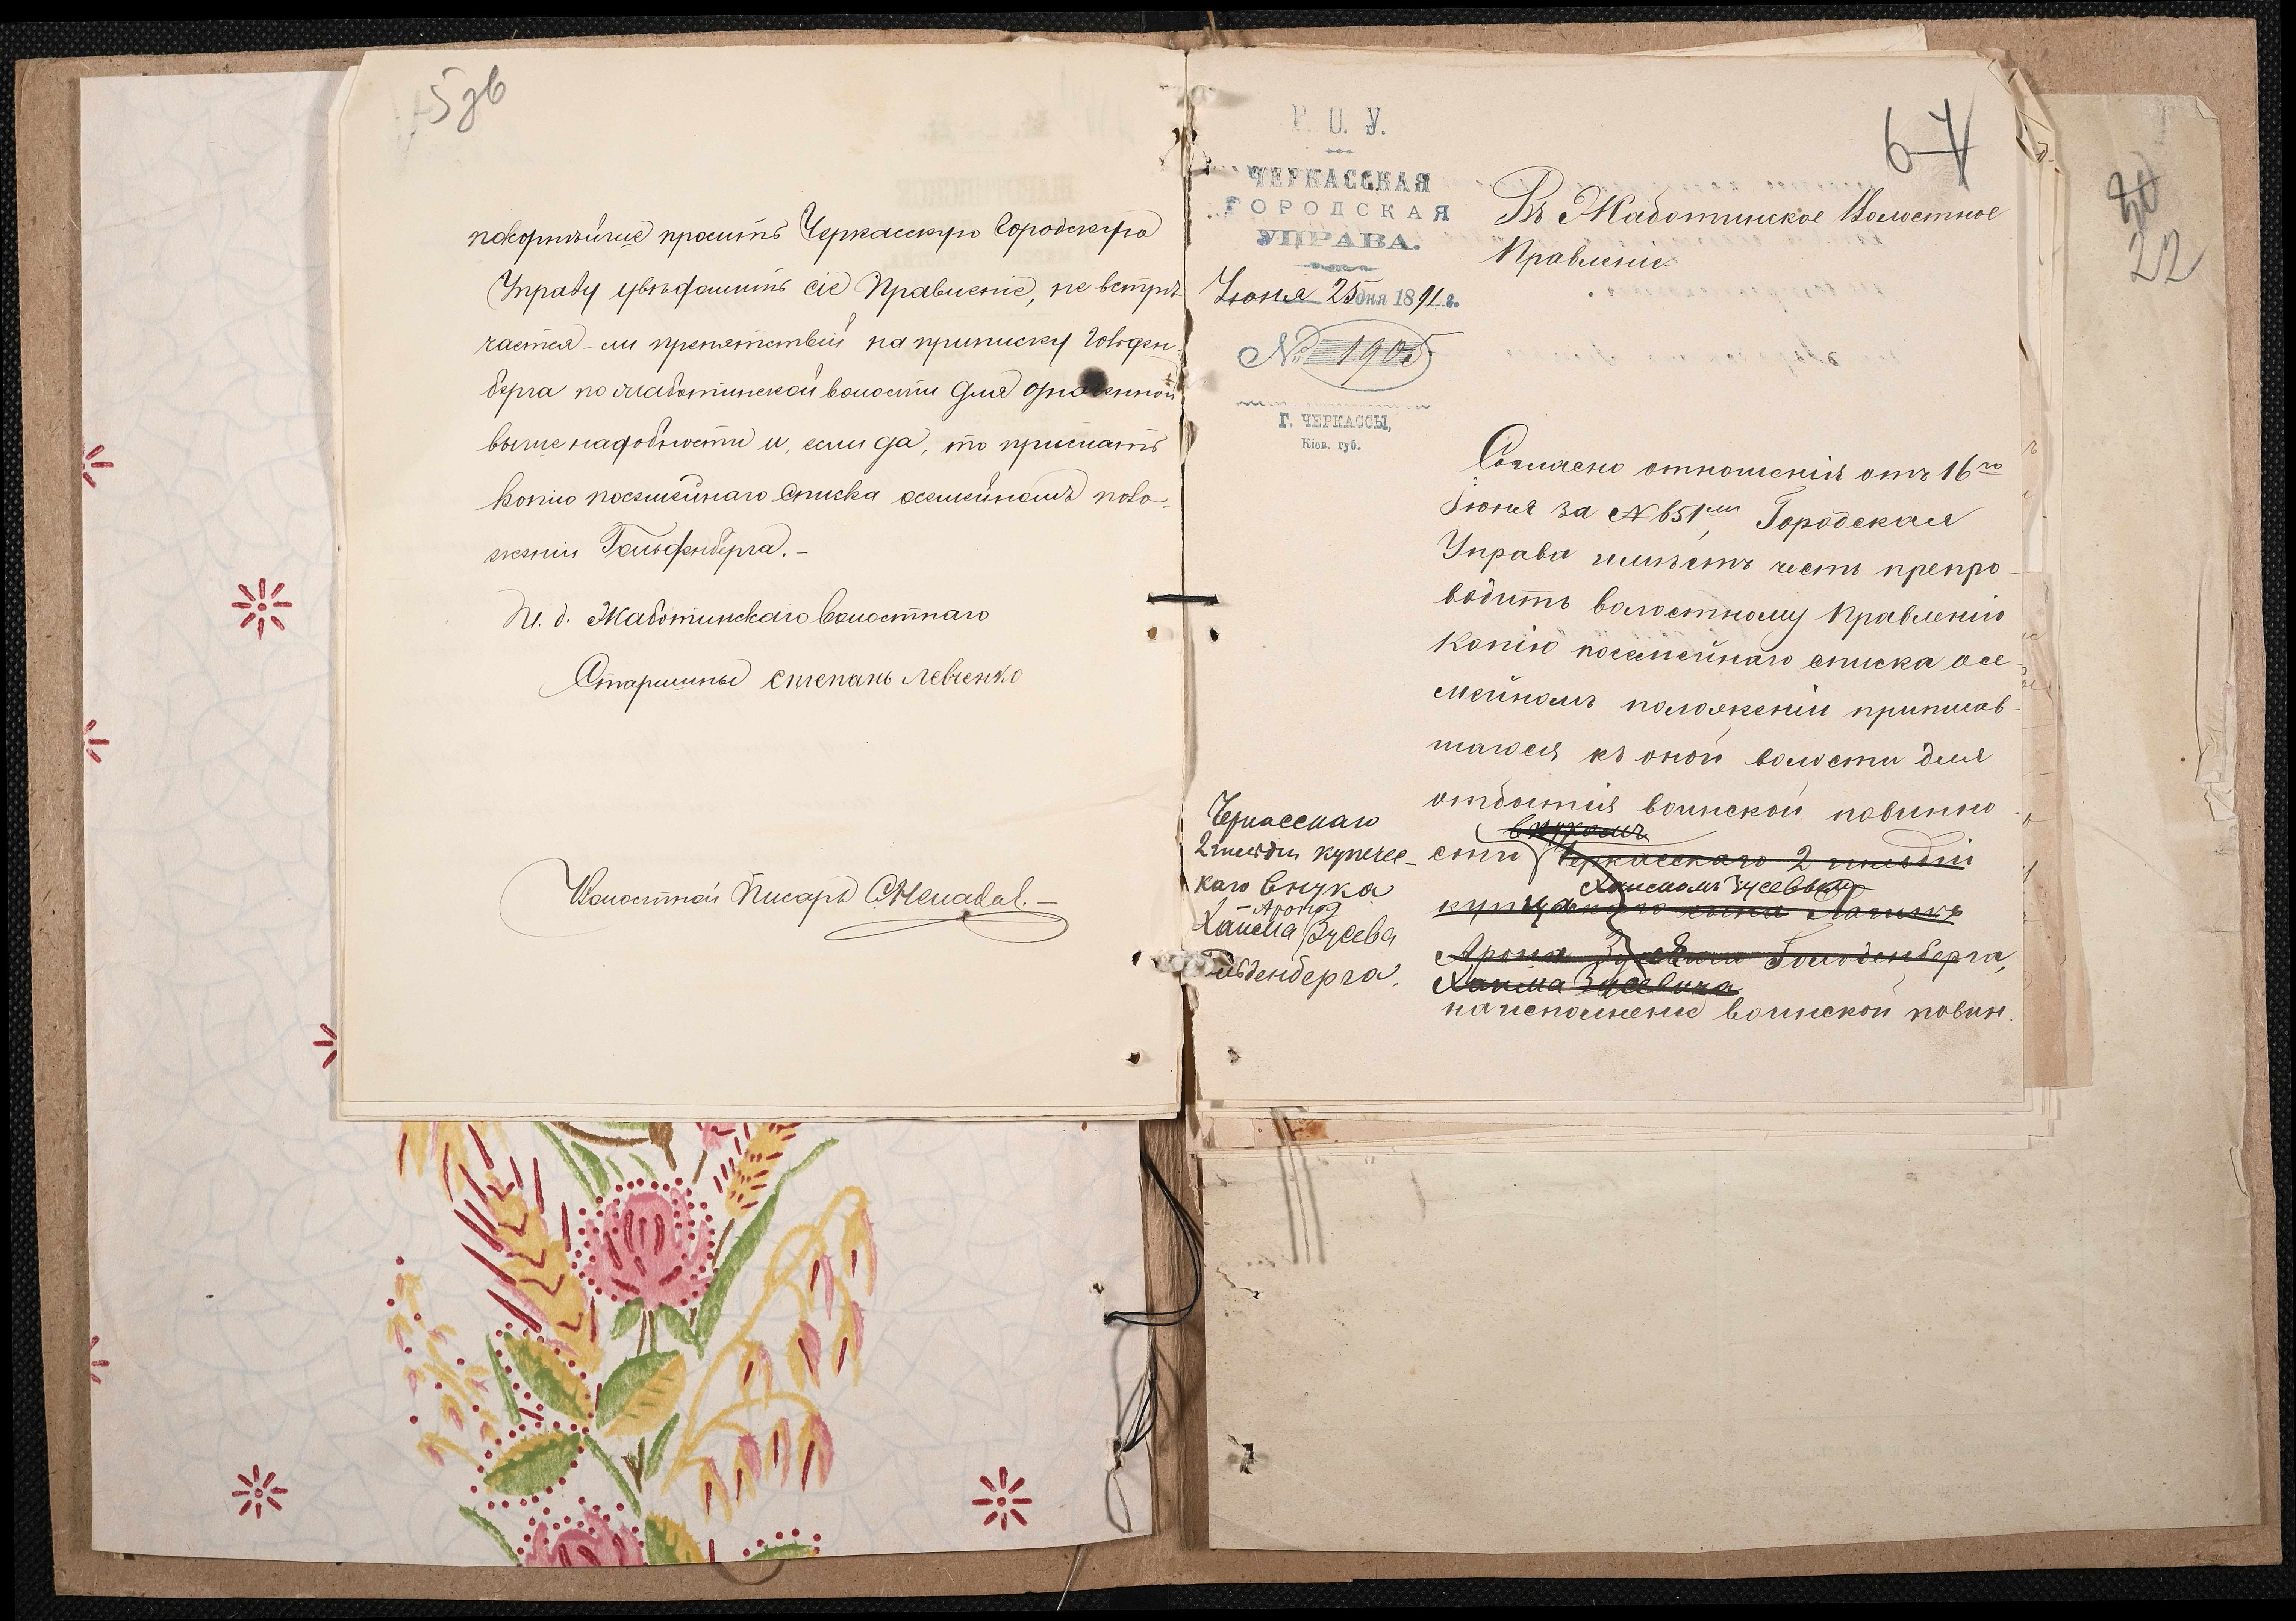 5зв
покорнѣйше просить Черкасскую Городскую
Управу увѣдомить сіе Правленіе, не встрѣ-
чается-ли препятствій на приписку Гольден-
берга по Жаботинской волости для означенной
выше надобности и, если да, то прислать
копію посемейнаго списка о семейномъ поло-
женіи Гольденберга.-
И. д. Жаботинскаго Волостнаго
Старшины Степанъ Левченко
Волостной Писарь
6 7
20
22
Р. П. У.
ЧЕРКАССКАЯ
ГОРОДСКАЯ
УПРАВА.
Іюня 25 дня 1891 г.
№ 1905
Г. ЧЕРКАССЫ,
Кіев. губ.
Въ Жаботинское Волостное
Правленіе.
Согласно отношенія отъ 16го
Іюня за № 651мъ, Городская
Управа имѣетъ честь препро-
водить волостному Правленію
копію посемейнаго списка о се-
мейномъ положеніи приписав-
шагося къ оной волости для
отбытія воинской повинно
внукомъ
сти Черкасскаго 2 гильдіи
Хаимомъ Зусевымъ
Арона Гольденберга,
Хаима Зусевича
на исполненіе воинской повин.
Черкасскаго
2 гильдіи купечес-
каго внука
Арона
Хаима Зусева
Гольденберга.